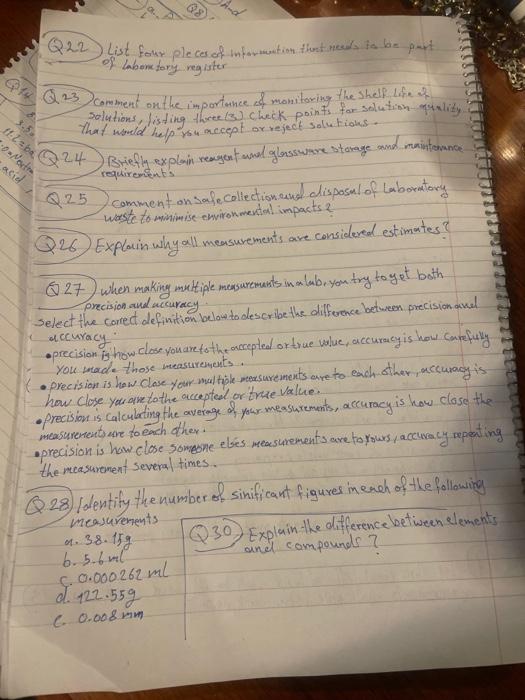 Q22 List four pieces of information that needs to be part
of laboratory register
Q23 comment on the importance of monitoring the shelf life of
solutions, listing three (3) check points for solution quality
that would help you accept or reject solutions.
Q24 Briefly explain reagent and glassware storage and maintenance
requirements
Q25 comment on safe collection and disposal of Laboratory
waste to minimise environmental impacts?
Q26 Explain why all measurements are considered estimates?
Q27 when making multiple measurements in a lab, you try to get both
precision and accuracy.
Select the correct definition below to describe the difference between precision and
accuracy.
• precision is how close you are to the accepted or true value, accuracy is how carefully
you made those measurements.
• precision is how close your multiple measurements are to each other, accuracy is
how close you are to the accepted or true value.
• precision is calculating the average of your measurements, accuracy is how close the
measurements are to each other.
• precision is how close someone elses measurements are to yours, accuracy repeating
the measurement several times.
Q28 Identify the number of sinificant figures in each of the following
measurements
a. 38.15g
b. 5.6 ml
c. 0.000262 ml
d. 122.55g
e. 0.008 mm
Q30 Explain the difference between elements
and compounds?
acid
And